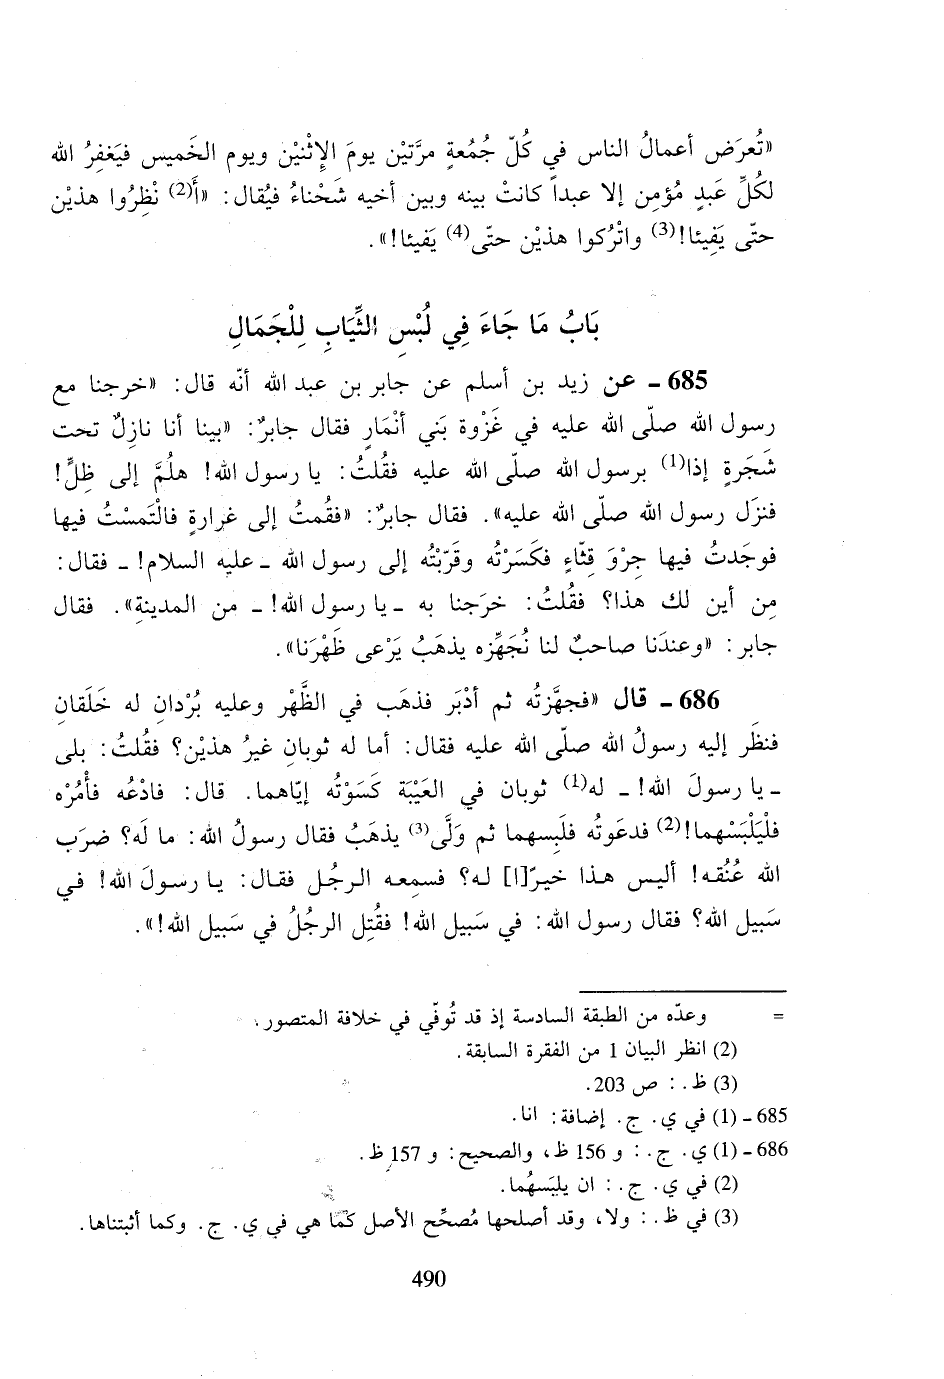 «تُعرَض أعمالُ الناس في كُلّ جُمُعةٍ مرَّتيْن يومَ الإِثْنيْن ويوم الخَميس فيَغفِرُ الله
لكُلِّ عَبدٍ مُؤمِن إلا عبداً كانتْ بينه وبين أخيه شَحْناءُ فيُقال: «أَ(2) نْظِرُوا هذيْن
حتّى يَفِيئا!(3) واتْرُكوا هذيْن حتّى(4) يَفيئا!».
بَابُ مَا جَاءَ فِي لُبْسِ الثِّيَابِ لِلْجَمَالِ
685 ـ عن زيد بن أسلم عن جابر بن عبد الله أنّه قال: «خرجنا مع
رسول الله صلّى الله عليه في غَزْوة بَني أنْمَارٍ فقال جابرٌ: «بينا أنا نازِلٌ تحت
شَجَرةٍ إذا(1) برسول الله صلّى الله عليه فقُلتُ: يا رسول الله! هلُمَّ إلى ظِلٍّ!
فنزَل رسول الله صلّى الله عليه». فقال جابرٌ: «فقُمتُ إلى غرارةٍ فالْتَمسْتُ فيها
فوجَدتُ فيها جِرْوَ قِثّاءٍ فكَسَرْتُه وقَرّبْتُه إلى رسول الله ـ عليه السلام! ـ فقال:
مِن أين لك هذا؟ فقُلتُ: خرَجنا به ـ يا رسول الله! ـ من المدينةِ». فقال
جابر: «وعندَنا صاحبٌ لنا نُجَهِّزه يذهَبُ يَرْعى ظَهْرَنا».
686 ـ قال «فجهَّزتُه ثم أدْبَر فذهَب في الظَّهْر وعليه بُرْدانِ له خَلَقانِ
فنظَر إليه رسولُ الله صلّى الله عليه فقال: أما له ثوبانِ غيرُ هذيْن؟ فقُلتُ: بلى
ـ يا رسولَ الله! ـ له(1) ثوبان في العَيْبَة كَسَوْتُه إيّاهما. قال: فادْعُه فأْمُرْه
فلْيَلْبَسْهما!(2) فدعَوتُه فلَبِسهما ثم وَلَّى(3) يذهَبُ فقال رسولُ الله: ما لَه؟ ضرَب
الله عُنُقه! أليس هذا خيرٌ[ا] له؟ فسمِعه الرجُل فقال: يا رسولَ الله! في
سَبيل الله؟ فقال رسول الله: في سَبيل الله! فقُتِل الرجُلُ في سَبيل الله!».
= وعدّه من الطبقة السادسة إذ قد تُوفّي في خلافة المتصور.
(2) انظر البيان 1 من الفقرة السابقة.
(3) ظ.: ص 203.
685 ـ (1) في ي. ج. إضافة: انا.
686 ـ (1) ي. ج.: و 156 ظ، والصحيح: و 157 ظ.
(2) في ي. ج.: ان يلبَسهُما.
(3) في ظ.: ولا، وقد أصلحها مُصحِّح الأصل كما هي في ي. ج. وكما أثبتناها.
490